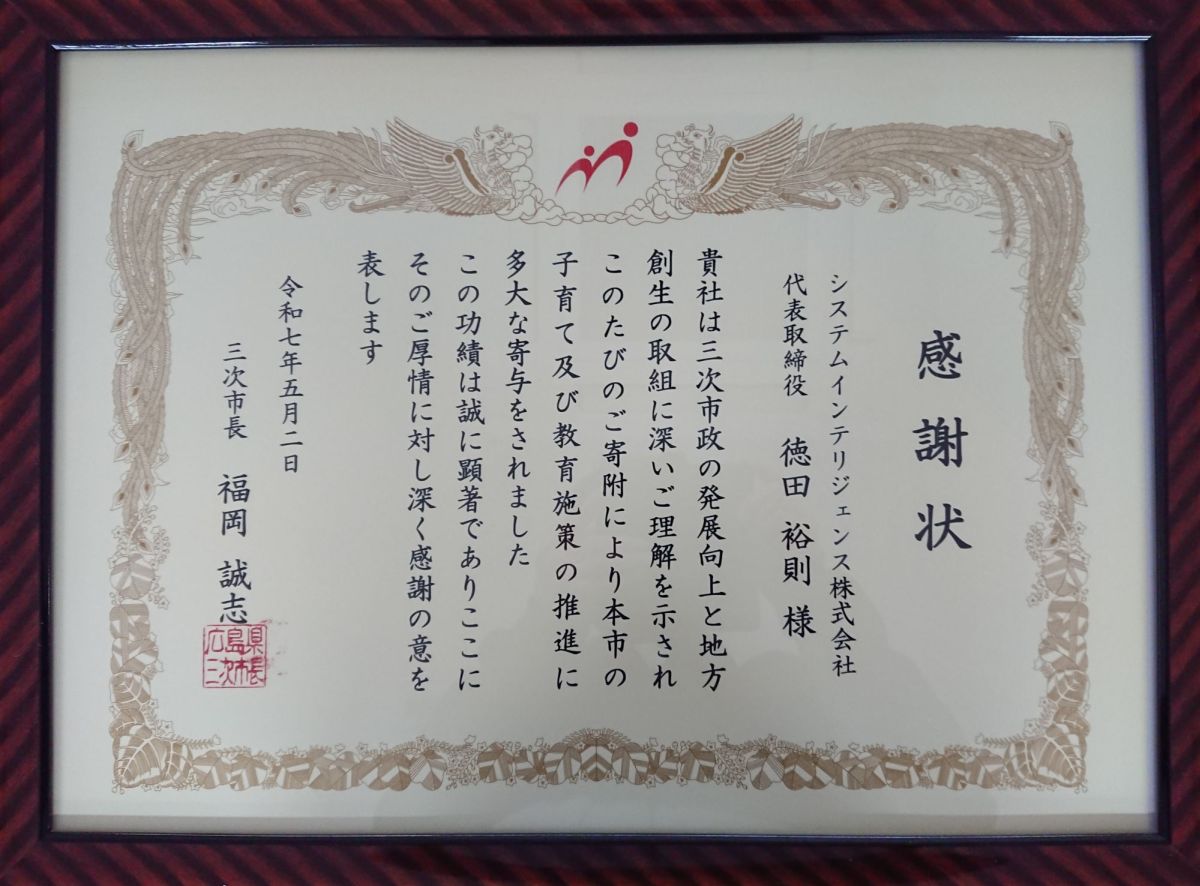 感謝状
システムインテリジェンス株式会社
代表取締役 徳田 裕則 様
貴社は三次市政の発展向上と地方
創生の取組に深いご理解を示され
このたびのご寄附により本市の
子育て及び教育施策の推進に
多大な寄与をされました
この功績は誠に顕著でありここに
そのご厚情に対し深く感謝の意を
表します
令和七年五月二日
三次市長 福岡 誠志
広島県
三次市長